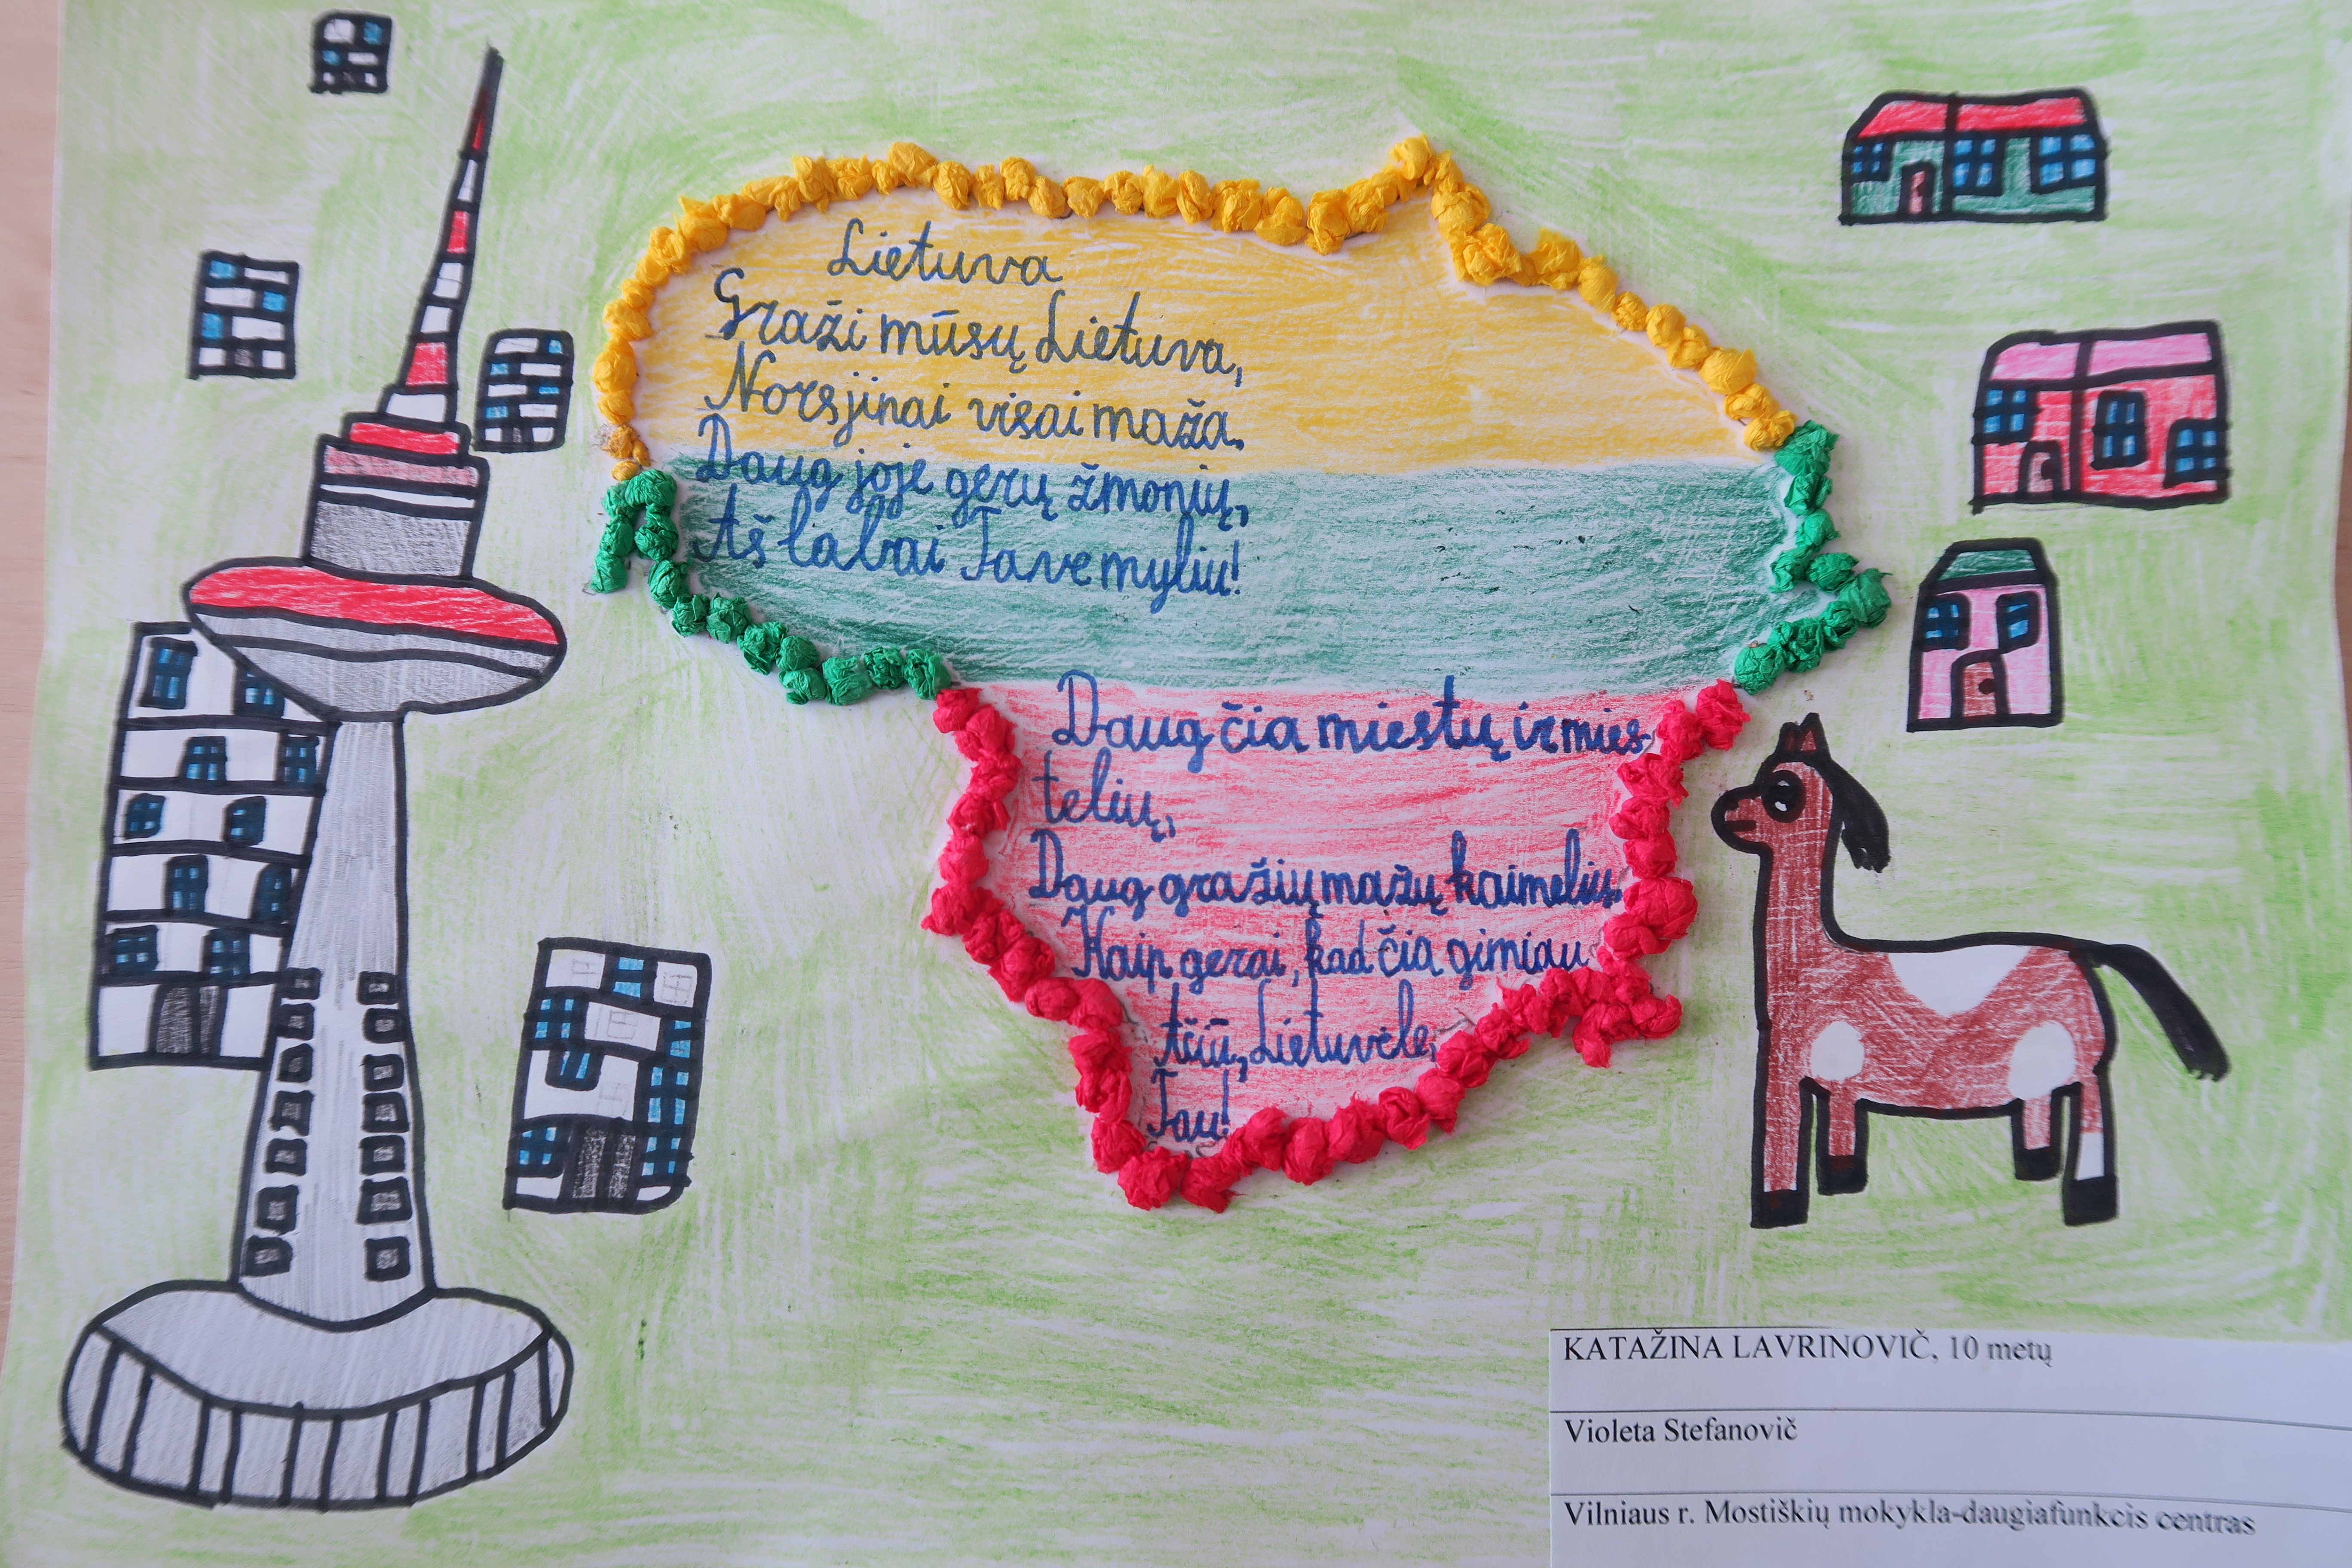 Lietuva
Graži mūsų Lietuva,
Nors jinai visai maža.
Daug joje gerų žmonių,
Aš labai Tave myliu!
Daug čia miestų ir mies-
telių,
Daug gražių mažų kaimelių.
Kaip gerai, kad čia gimiau
Ačiū, Lietuvėle,
Tau!
KATAŽINA LAVRINOVIČ, 10 metų
Violeta Stefanovič
Vilniaus r. Mostiškių mokykla-daugiafunkcis centras